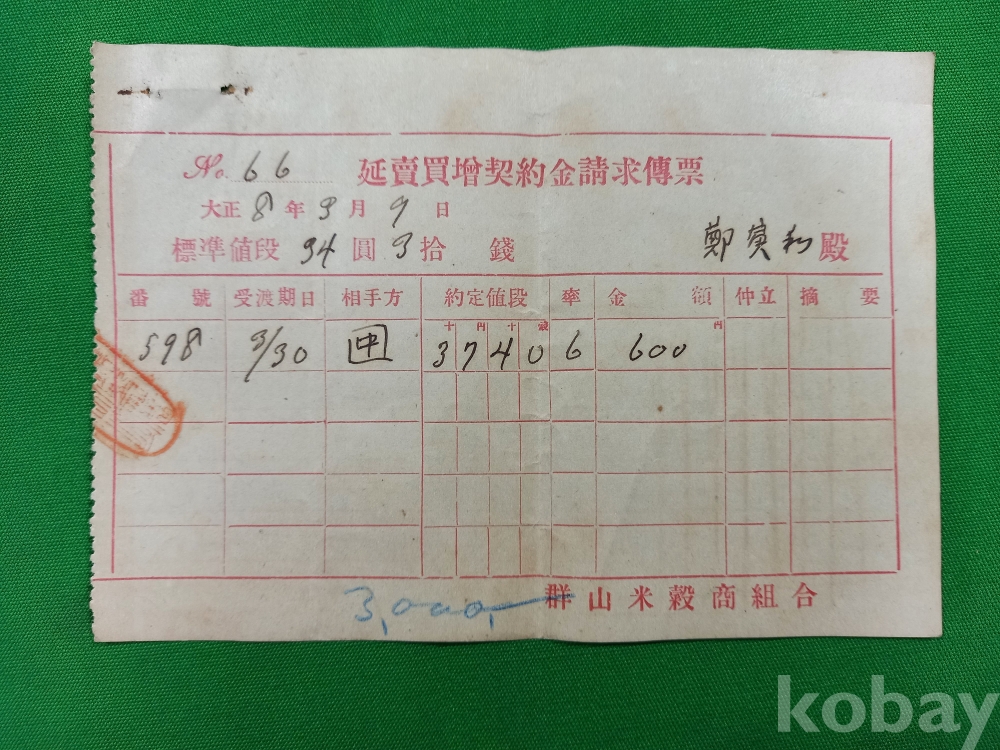 No. 66 延賣買增契約金請求傳票
大正 8 年 3 月 9 日
標準値段 34 圓 3 拾 錢 鄭寅和 殿
番號 受渡期日 相手方 約定値段 率 金額 仲立 摘要
十 円 十 錢 円
598 3/30 中 3740 6 600
群山米穀商組合
3,000,-
kobay